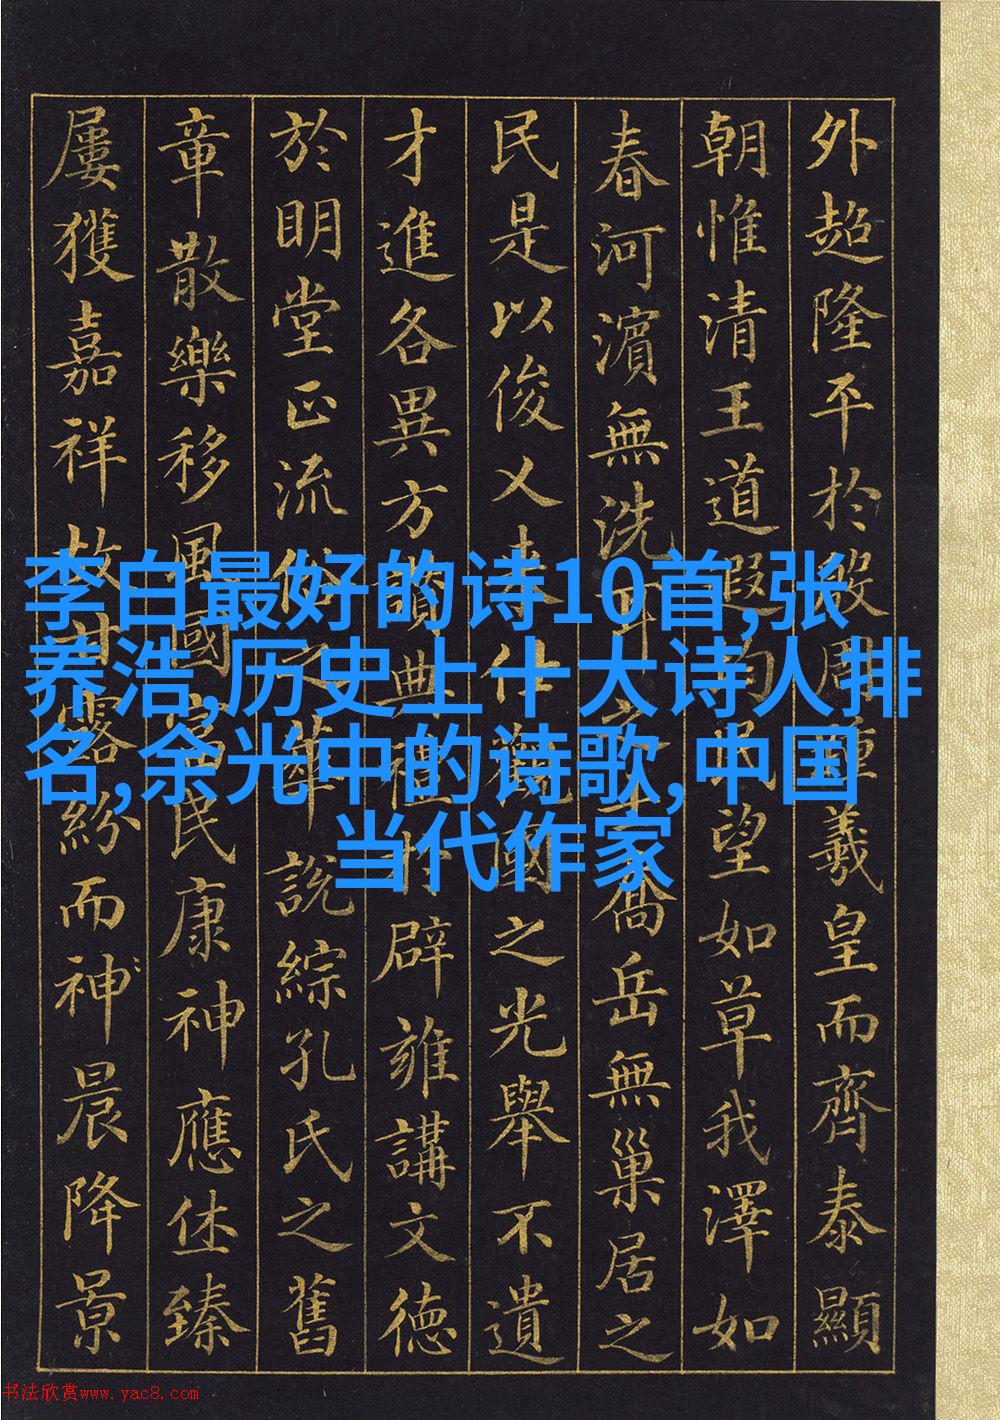 外超隆平於殷周踵羲皇而齊泰顯
朝惟清王道遐均民望如草我澤如
春河濱無洗耳之士喬岳無巢居之
民是以俊乂來仕觀國之光舉不遺
才進各異方讚典禮於辟雍講文德
於明堂正流俗之華說綜孔氏之舊
章散樂移風國富民康神應休臻
屢獲嘉祥故甘露紛而神晨降景
李白最好的诗10首,张
养浩,历史上十大诗人排
名,余光中的诗歌,中国
当代作家
书法欣赏www.yac8.com